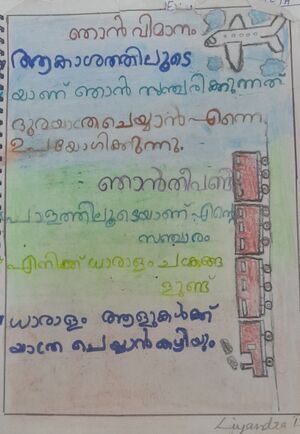 ഞാൻ വിമാനം
ആകാശത്തിലൂടെ
യാണ് ഞാൻ സഞ്ചരിക്കുന്നത്
ദൂരയാത്ര ചെയ്യാൻ എന്നെ
ഉപയോഗിക്കുന്നു.
ഞാൻ തീവണ്ടി
പാളത്തിലൂടെയാണ് എന്റെ
സഞ്ചാരം
എനിക്ക് ധാരാളം ചക്രങ്ങ
ളുണ്ട്
ധാരാളം ആളുകൾക്ക്
യാത്ര ചെയ്യാൻ കഴിയും
Liyandra